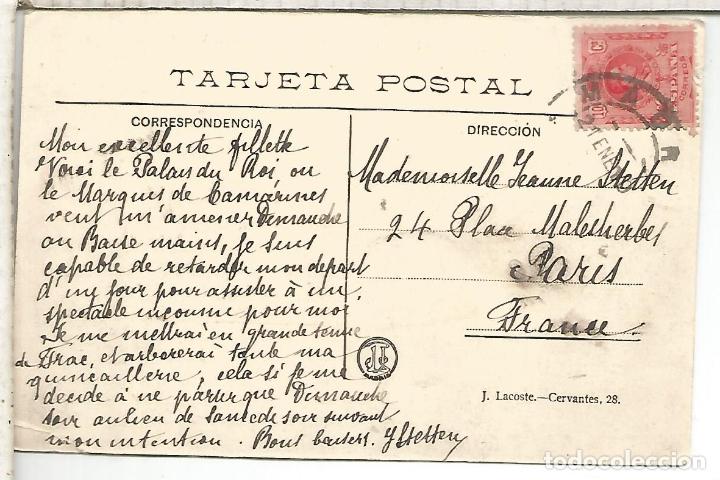 TARJETA POSTAL
CORRESPONDENCIA
Mon excellente fillette
Voici le Palais du Roi, ou
le Marquis de Camarines
veut m'amener Dimanche
au Baise mains, je suis
capable de retarder mon depart
d'un jour pour assister à un
spectacle inconnu pour moi
Je me mettrai en grande tenue
de Frac, et arborerai toute ma
quincaillerie, cela si je me
decide à ne partir que Dimanche
soir au lieu de Samedi soir suivant
mon intention. Bons baisers. JStetten
DIRECCIÓN
Mademoiselle Jeanne Stetten
24 Place Malesherbes
Paris
France
J. Lacoste.—Cervantes, 28.
MADRID
ESPAÑA
CORREOS
10
21 ENE
todocoleccion